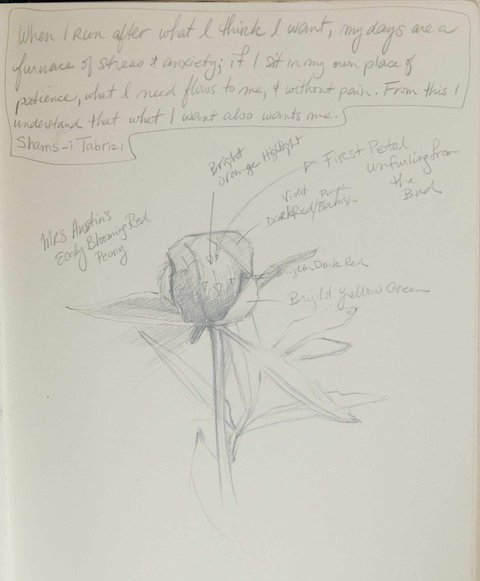 When I Run after what I think I want, my days are a
furnace of stress & anxiety; if I sit in my own place of
patience, what I need flows to me, & without pain. From this I
understand that what I want also wants me.
Shams-i Tabrizi
Bright
orange Highlight
First Petal
unfurling from
the
Bud
Violet Purple
Dark Red/
Mrs Austin's
Early Blooming Red
Peony
Bright Dark Red
Bright Yellow Green